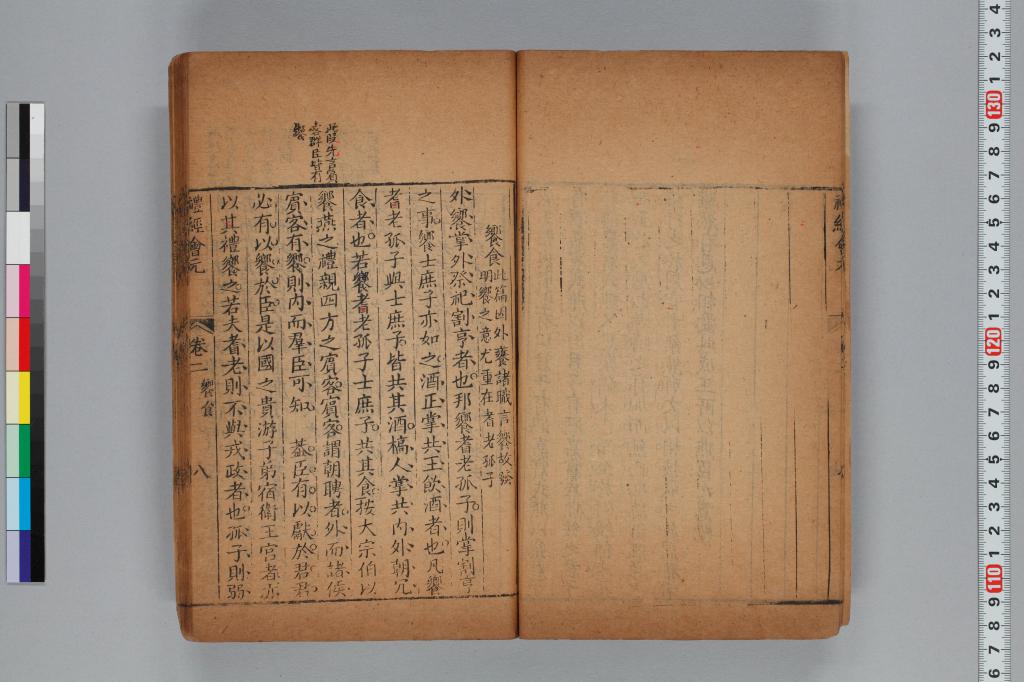 饗食此篇因外饔諸職言饗故發
明饗之意尤重在耆老孤子
外饔掌外祭祀割亨者也邦饗耆老孤子則掌割亨
之事饗士庶子亦如之酒正掌共王飲酒者也凡饗
耆老孤子與士庶子皆共其酒槁人掌共內外朝冗
食者也若饗耆老孤子士庶子共其食按大宗伯以
饗燕之禮親四方之賓客賓客謂朝聘者外而諸侯
賓客有饗則內而羣臣可知 葢臣有以獻於君君
必有以饗於臣是以國之貴游子弟宿衛王宮者亦
以其禮饗之若夫耆老則不與戎政者也孤子則弱
此段先言賓
客群臣皆有
饗
禮經會元
卷二
饗食
八